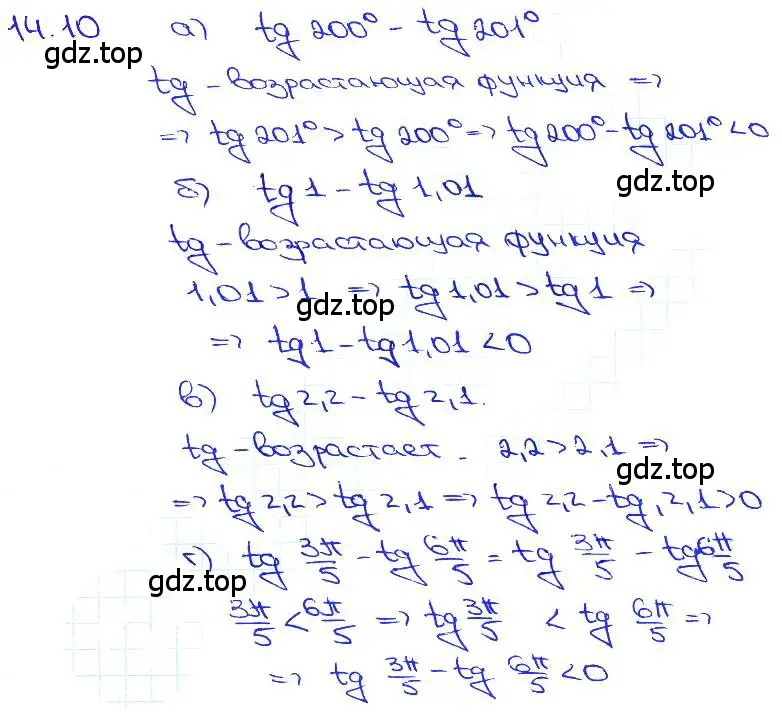 14.10 а) tg 200° - tg 201°
gdz.top
tg - возрастающая функция =>
=> tg 201° > tg 200° => tg 200° - tg 201° < 0
б) tg 1 - tg 1,01
gdz.top
tg - возрастающая функция
1,01 > 1 => tg 1,01 > tg 1 =>
gdz.top
=> tg 1 - tg 1,01 < 0
в) tg 2,2 - tg 2,1.
tg - возрастает. 2,2 > 2,1 =>
gdz.top
=> tg 2,2 > tg 2,1 => tg 2,2 - tg, 2,1 > 0
г) tg 3π/5 - tg 6π/5 = tg 3π/5 - tg 6π/5
gdz.top
3π/5 < 6π/5 => tg 3π/5 < tg 6π/5 =>
=> tg 3π/5 - tg 6π/5 < 0